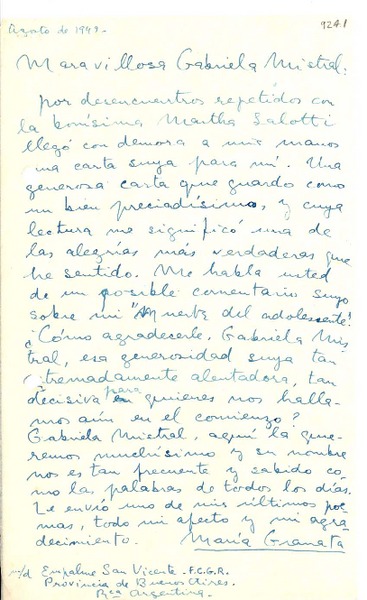 Agosto de 1949.
9241
Maravillosa Gabriela Mistral:
por desencuentros repetidos con
la bonísima Martha Salotti
llegó con demora a mis manos
una carta suya para mí. Una
generosa carta que guardo como
un bien preciadísimo, y cuya
lectura me significó una de
las alegrías más verdaderas que
he sentido. Me habla usted
de un posible comentario suyo
sobre mi "Muerte del adolescente".
¿Cómo agradecerle, Gabriela Mis-
tral, esa generosidad suya tan
extremadamente alentadora, tan
decisiva para quienes nos halla-
mos aún en el comienzo?
Gabriela Mistral, aquí la que-
remos muchísimo y su nombre
nos es tan frecuente y sabido co-
mo las palabras de todos los días.
Le envío uno de mis últimos poe-
mas, todo mi afecto y mi agra-
decimiento. María Granata
m/d Empalme San Vicente - F.C.G.R.
Provincia de Buenos Aires.
Rca Argentina.